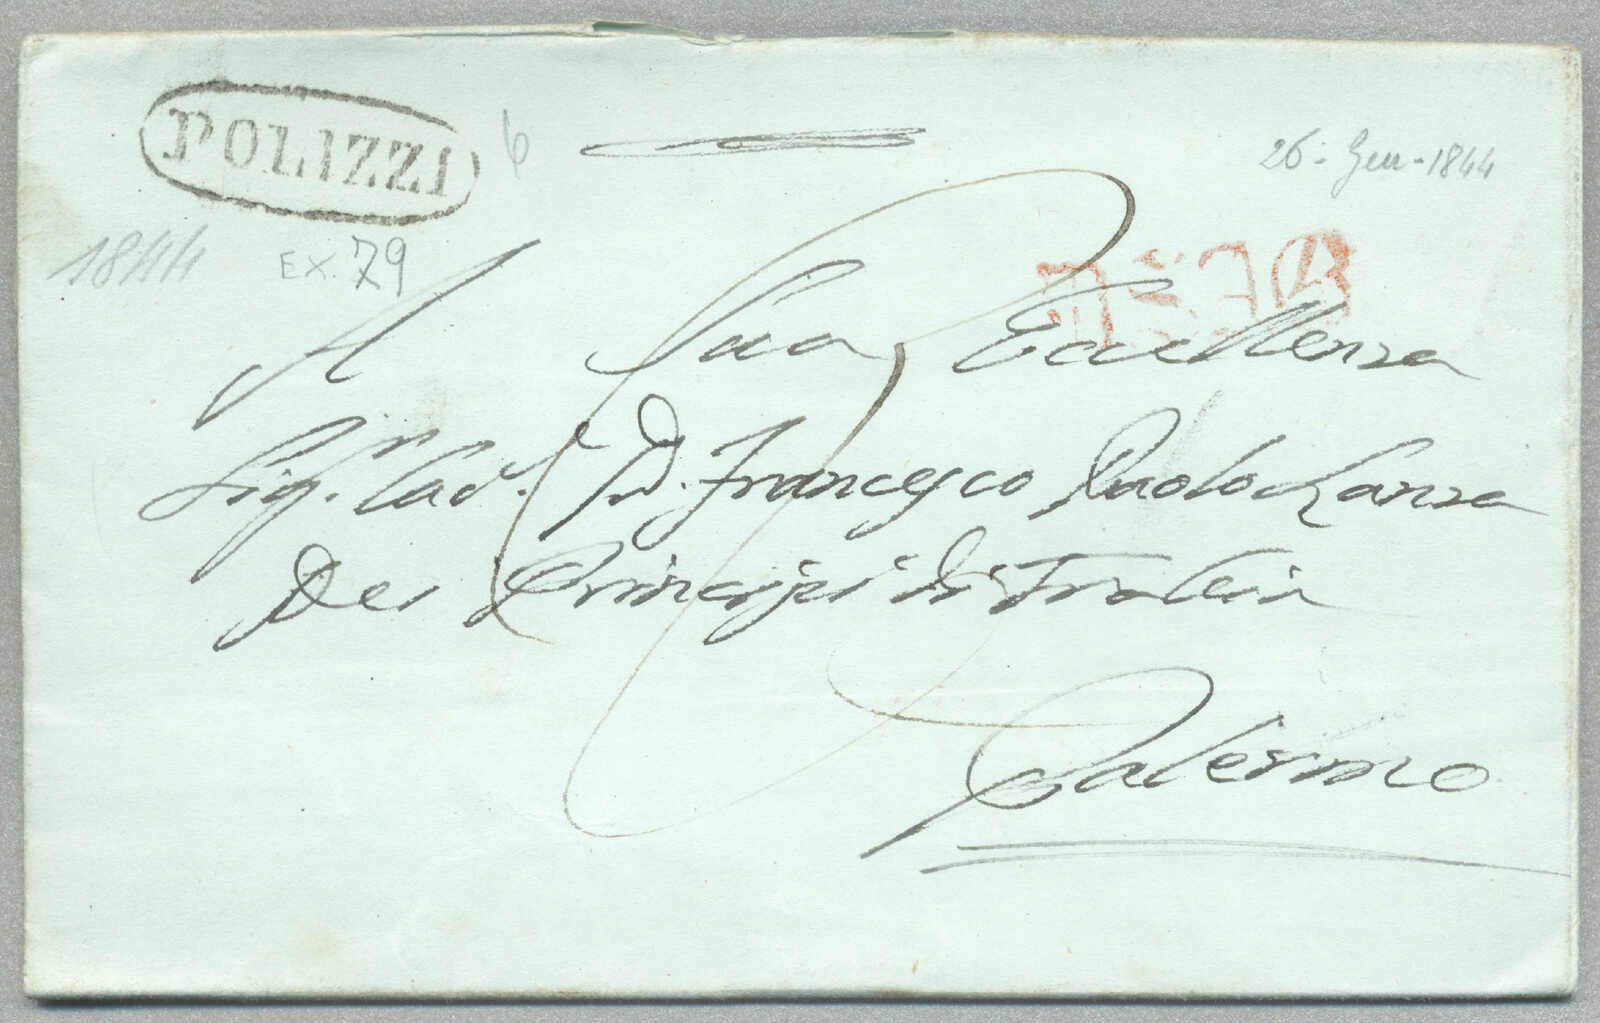 POLIZZI
6
26. Gen. 1844
1844
EX. 79
A Sua Eccellenza
Sig.r Cav.r D. Francesco Paolo Lanza
Dei Principi di Trabia
Palermo